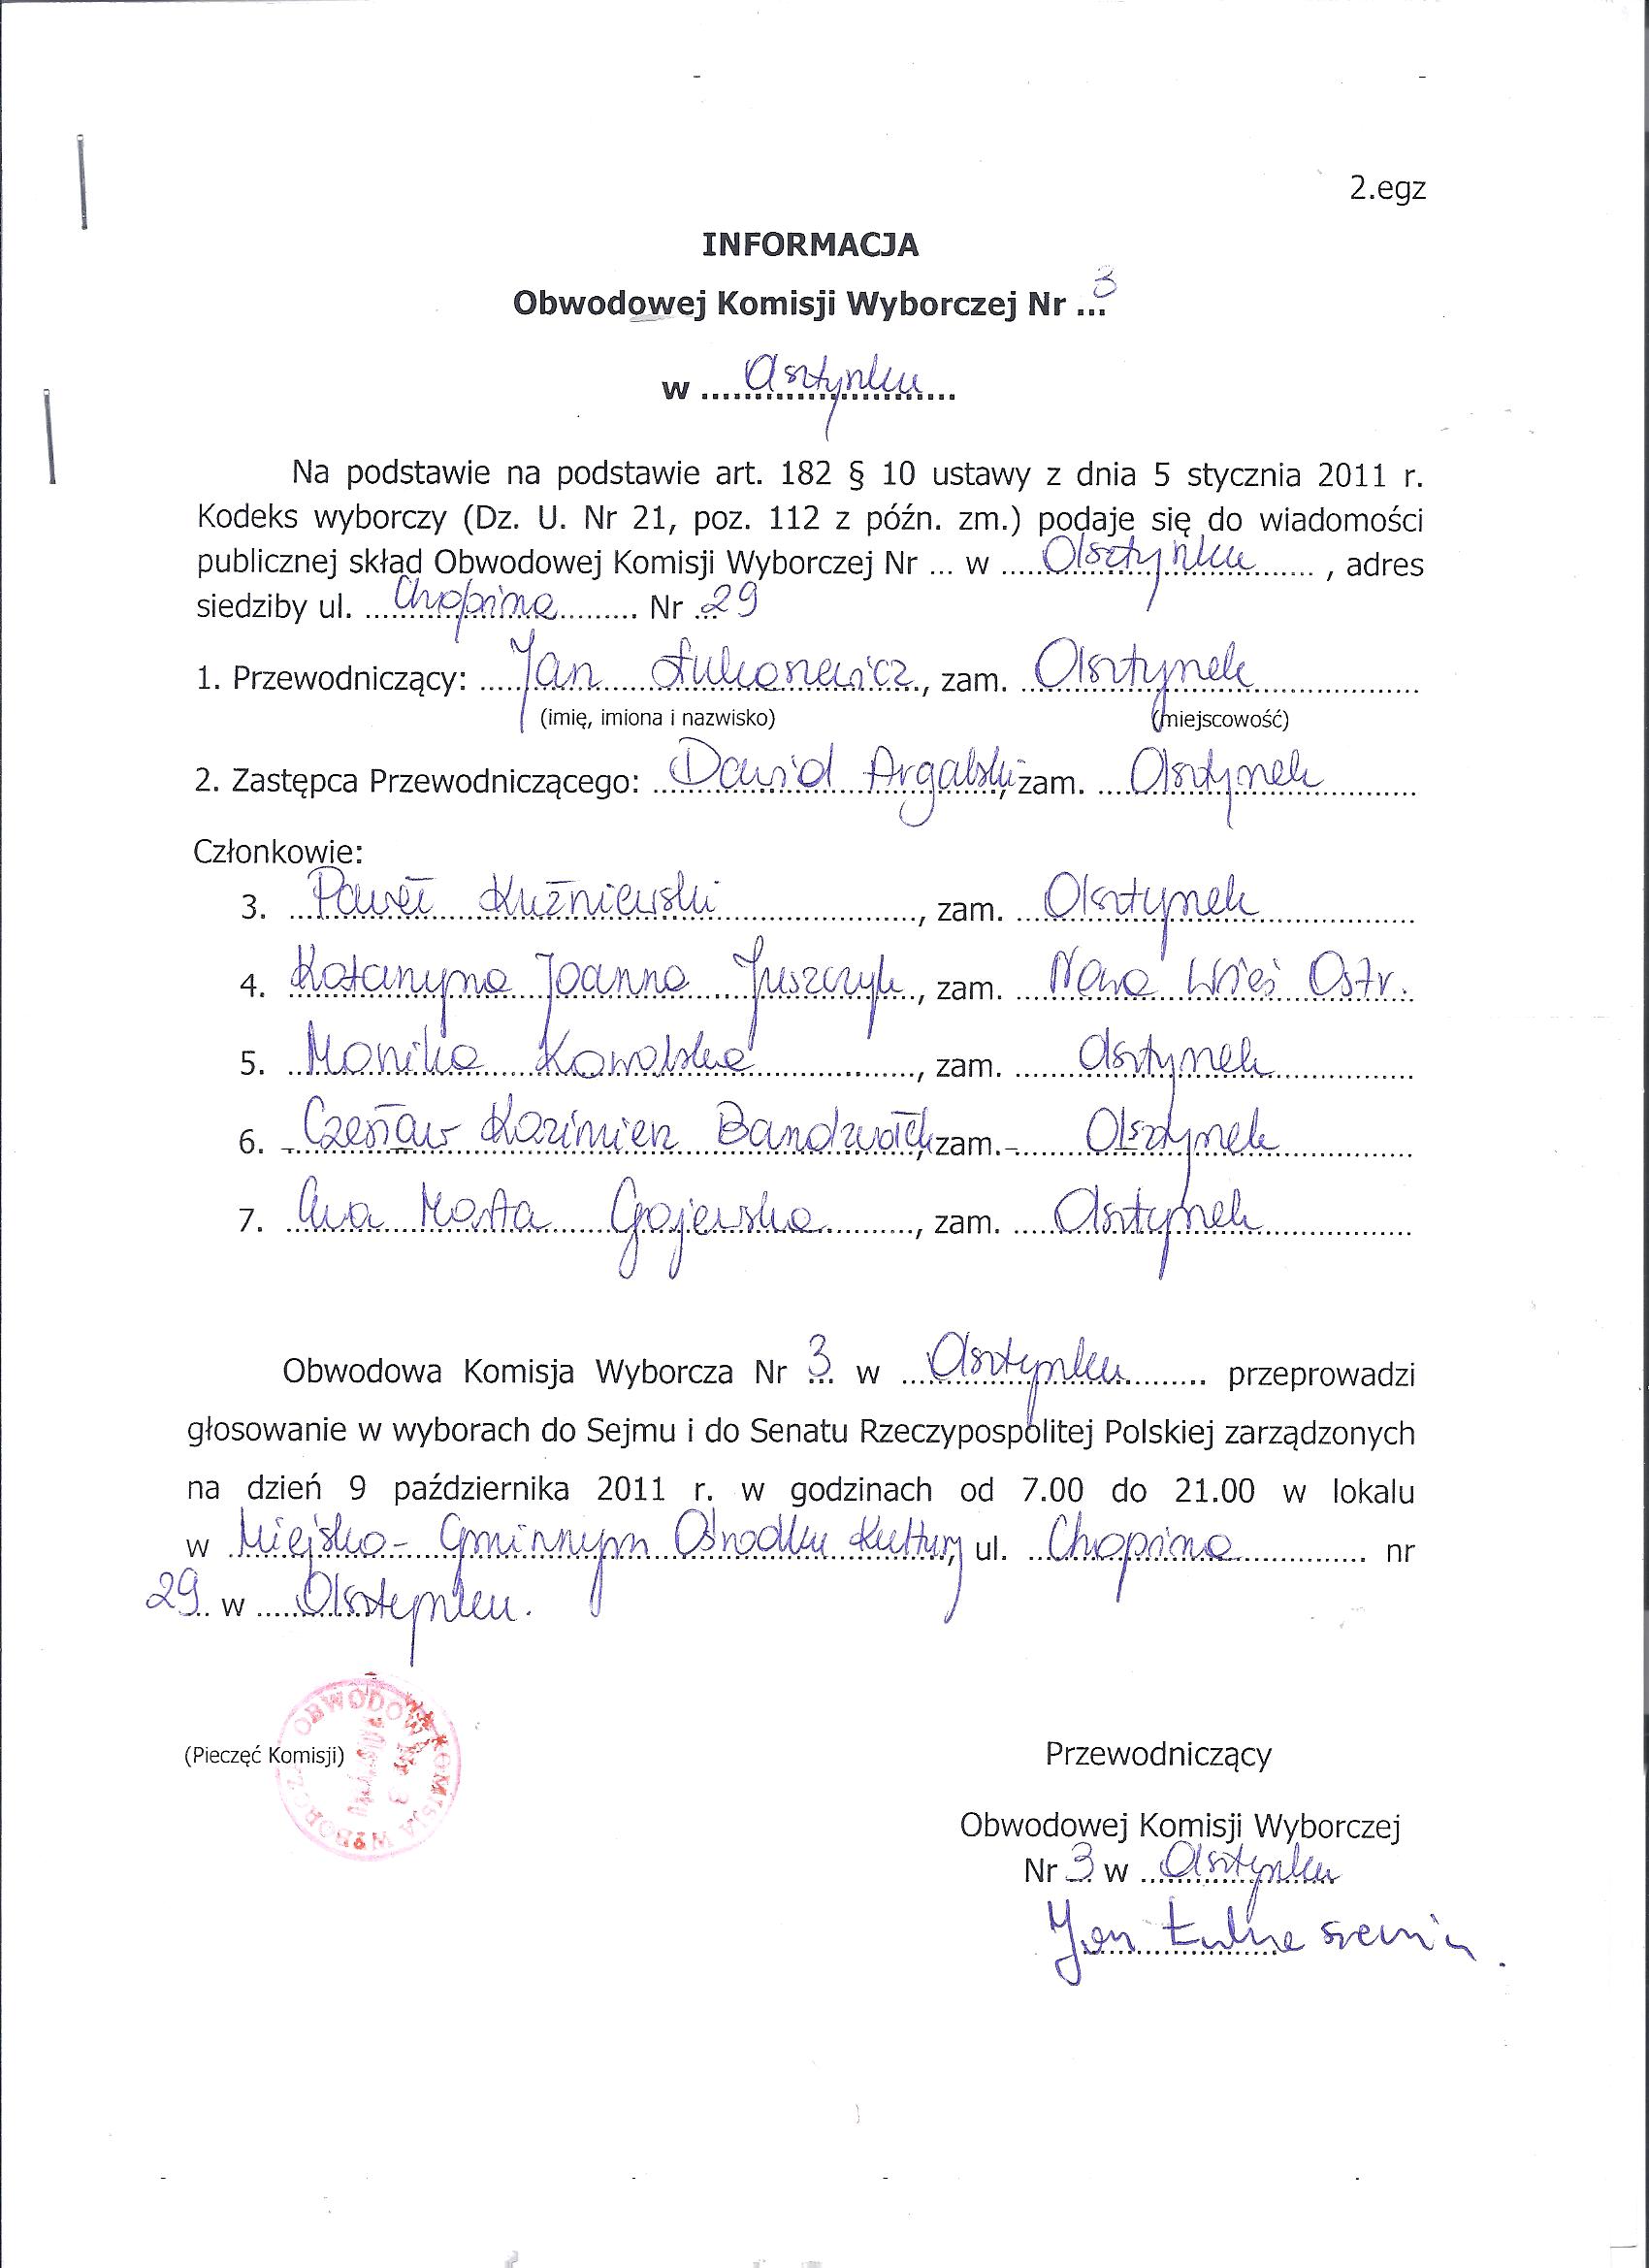 2.egz
INFORMACJA
Obwodowej Komisji Wyborczej Nr ...3
w ....Olsztynku....
Na podstawie na podstawie art. 182 § 10 ustawy z dnia 5 stycznia 2011 r.
Kodeks wyborczy (Dz. U. Nr 21, poz. 112 z późn. zm.) podaje się do wiadomości
publicznej skład Obwodowej Komisji Wyborczej Nr ... w .....Olsztynku....... , adres
siedziby ul. ...Chopina......... Nr ..29
1. Przewodniczący: .....Jan Łukaszewicz.., zam. ..Olsztynek..................
(imię, imiona i nazwisko) (miejscowość)
2. Zastępca Przewodniczącego: ..Dawid Argalski, zam. ....Olsztynek............
Członkowie:
3. ...Paweł Kuźniewski........................., zam. ...Olsztynek...................
4. Katarzyna Joanna Juszczyk.., zam. ....Nowa Wieś Ostr.
5. ..Monika Kowalska....................., zam. .......Olsztynek.................
6. Czesław Kazimierz Bandzwołek, zam. .......Olsztynek................
7. ..Ewa Marta Gajewska.........., zam. ....Olsztynek..................
Obwodowa Komisja Wyborcza Nr 3 w ...Olsztynku.......... przeprowadzi
głosowanie w wyborach do Sejmu i do Senatu Rzeczypospolitej Polskiej zarządzonych
na dzień 9 października 2011 r. w godzinach od 7.00 do 21.00 w lokalu
w Miejsko-Gminnym Ośrodku Kultury, ul. ..Chopina.............. nr
29.. w .....Olsztynku.
OBWODOWA KOMISJA WYBORCZA
Nr 3
(Pieczęć Komisji) Przewodniczący
Obwodowej Komisji Wyborczej
Nr 3 w ...Olsztynku
Jan Łukaszewicz